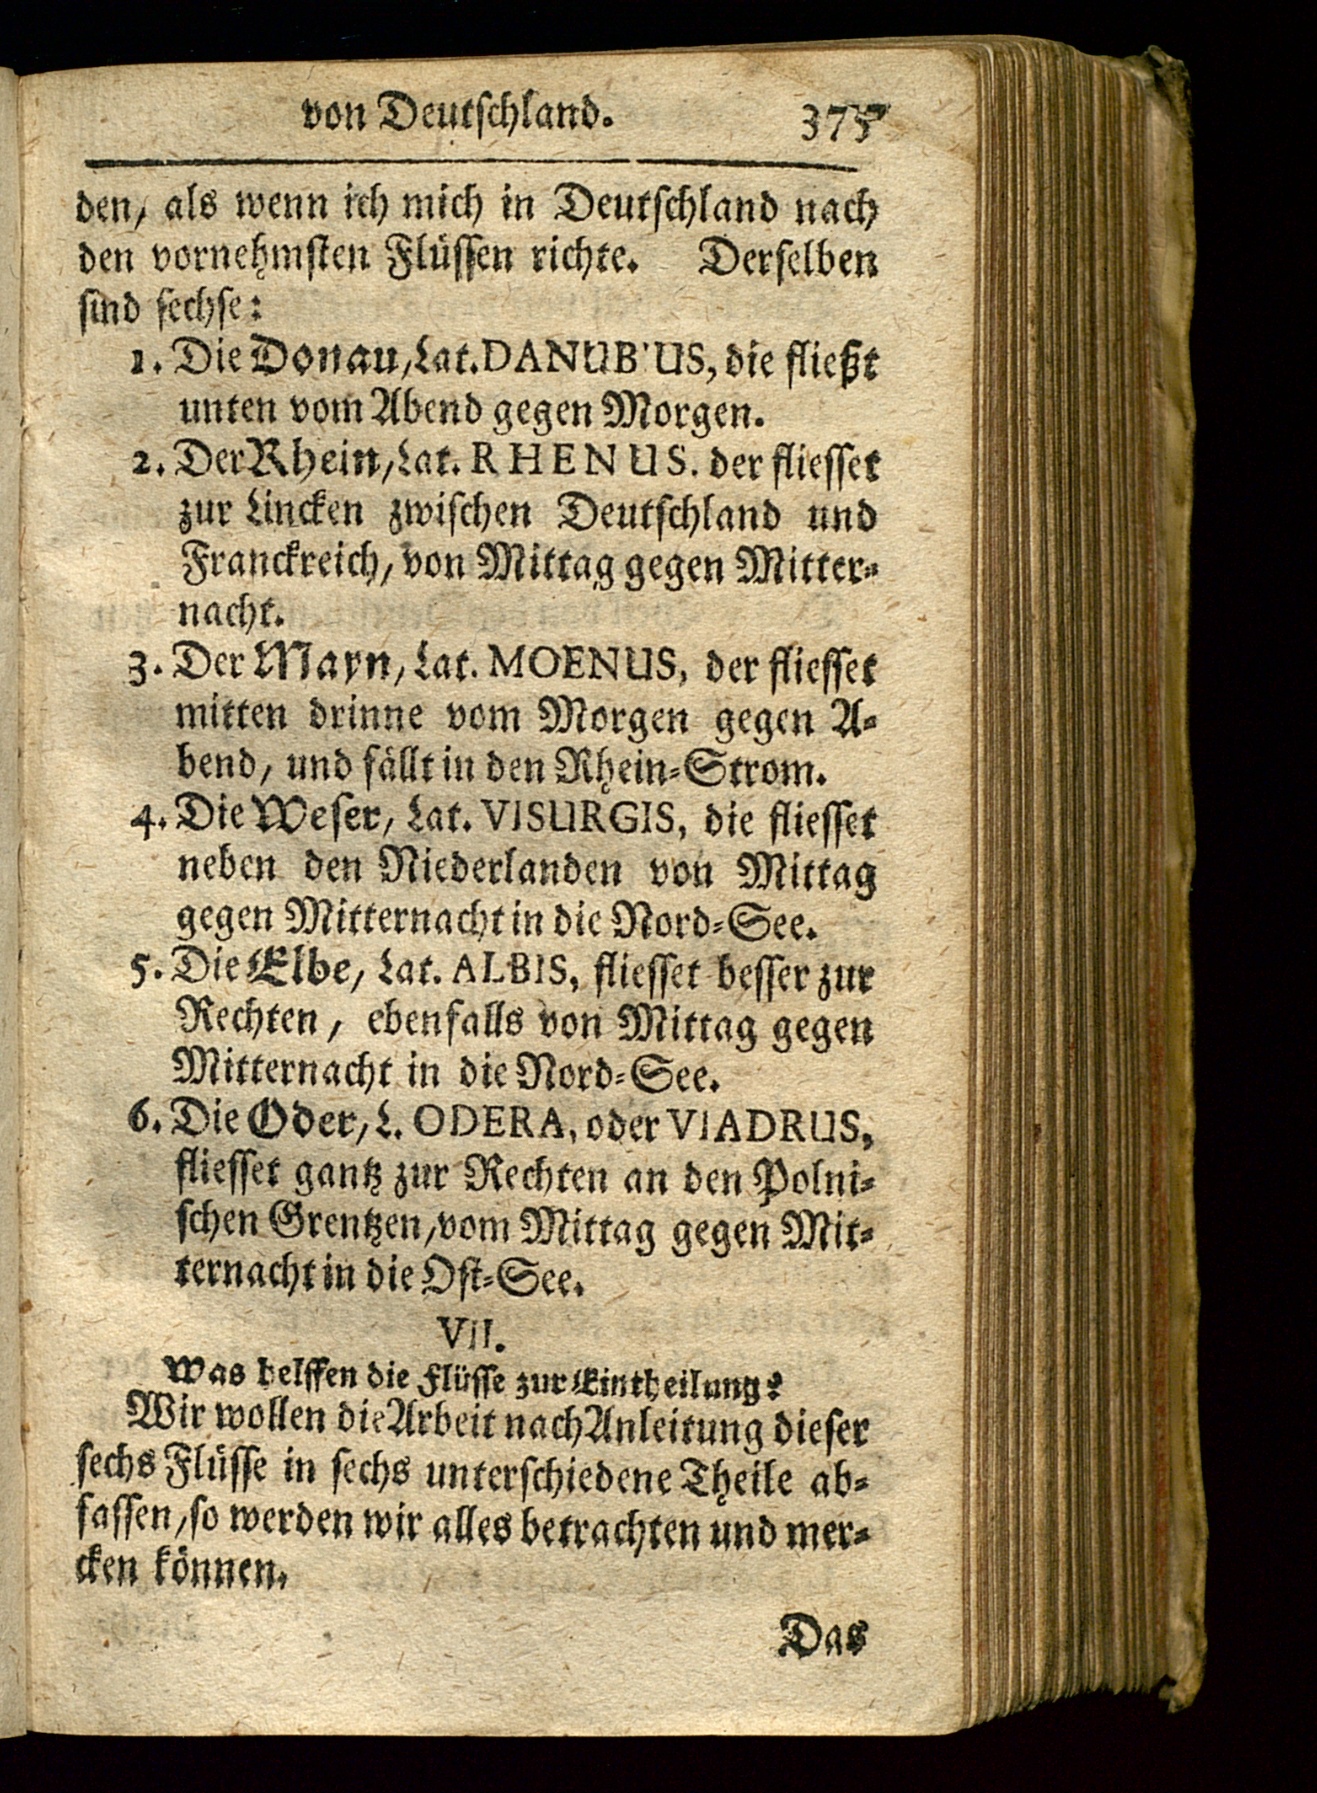 von Deutschland. 375
den, als wenn ich mich in Deutschland nach
den vornehmsten Flüssen richte. Derselben
sind sechse:
1. Die Donau, Lat. DANUB'US, die fließt
unten vom Abend gegen Morgen.
2. Der Rhein, Lat. RHENUS. der fliesset
zur Lincken zwischen Deutschland und
Franckreich, von Mittag gegen Mitter-
nacht.
3. Der Mayn, Lat. MOENUS, der fliesset
mitten drinne vom Morgen gegen A-
bend, und fällt in den Rhein-Strom.
4. Die Weser, Lat. VISURGIS, die fliesset
neben den Niederlanden von Mittag
gegen Mitternacht in die Nord-See.
5. Die Elbe, Lat. ALBIS, fliesset besser zur
Rechten, ebenfalls von Mittag gegen
Mitternacht in die Nord-See.
6. Die Oder, L. ODERA, oder VIADRUS,
fliesset gantz zur Rechten an den Polni-
schen Grentzen, vom Mittag gegen Mit-
ternacht in die Ost-See.
VII.
Was helffen die Flüsse zur Eintheilung?
Wir wollen die Arbeit nach Anleitung dieser
sechs Flüsse in sechs unterschiedene Theile ab-
fassen, so werden wir alles betrachten und mer-
cken können.
Das